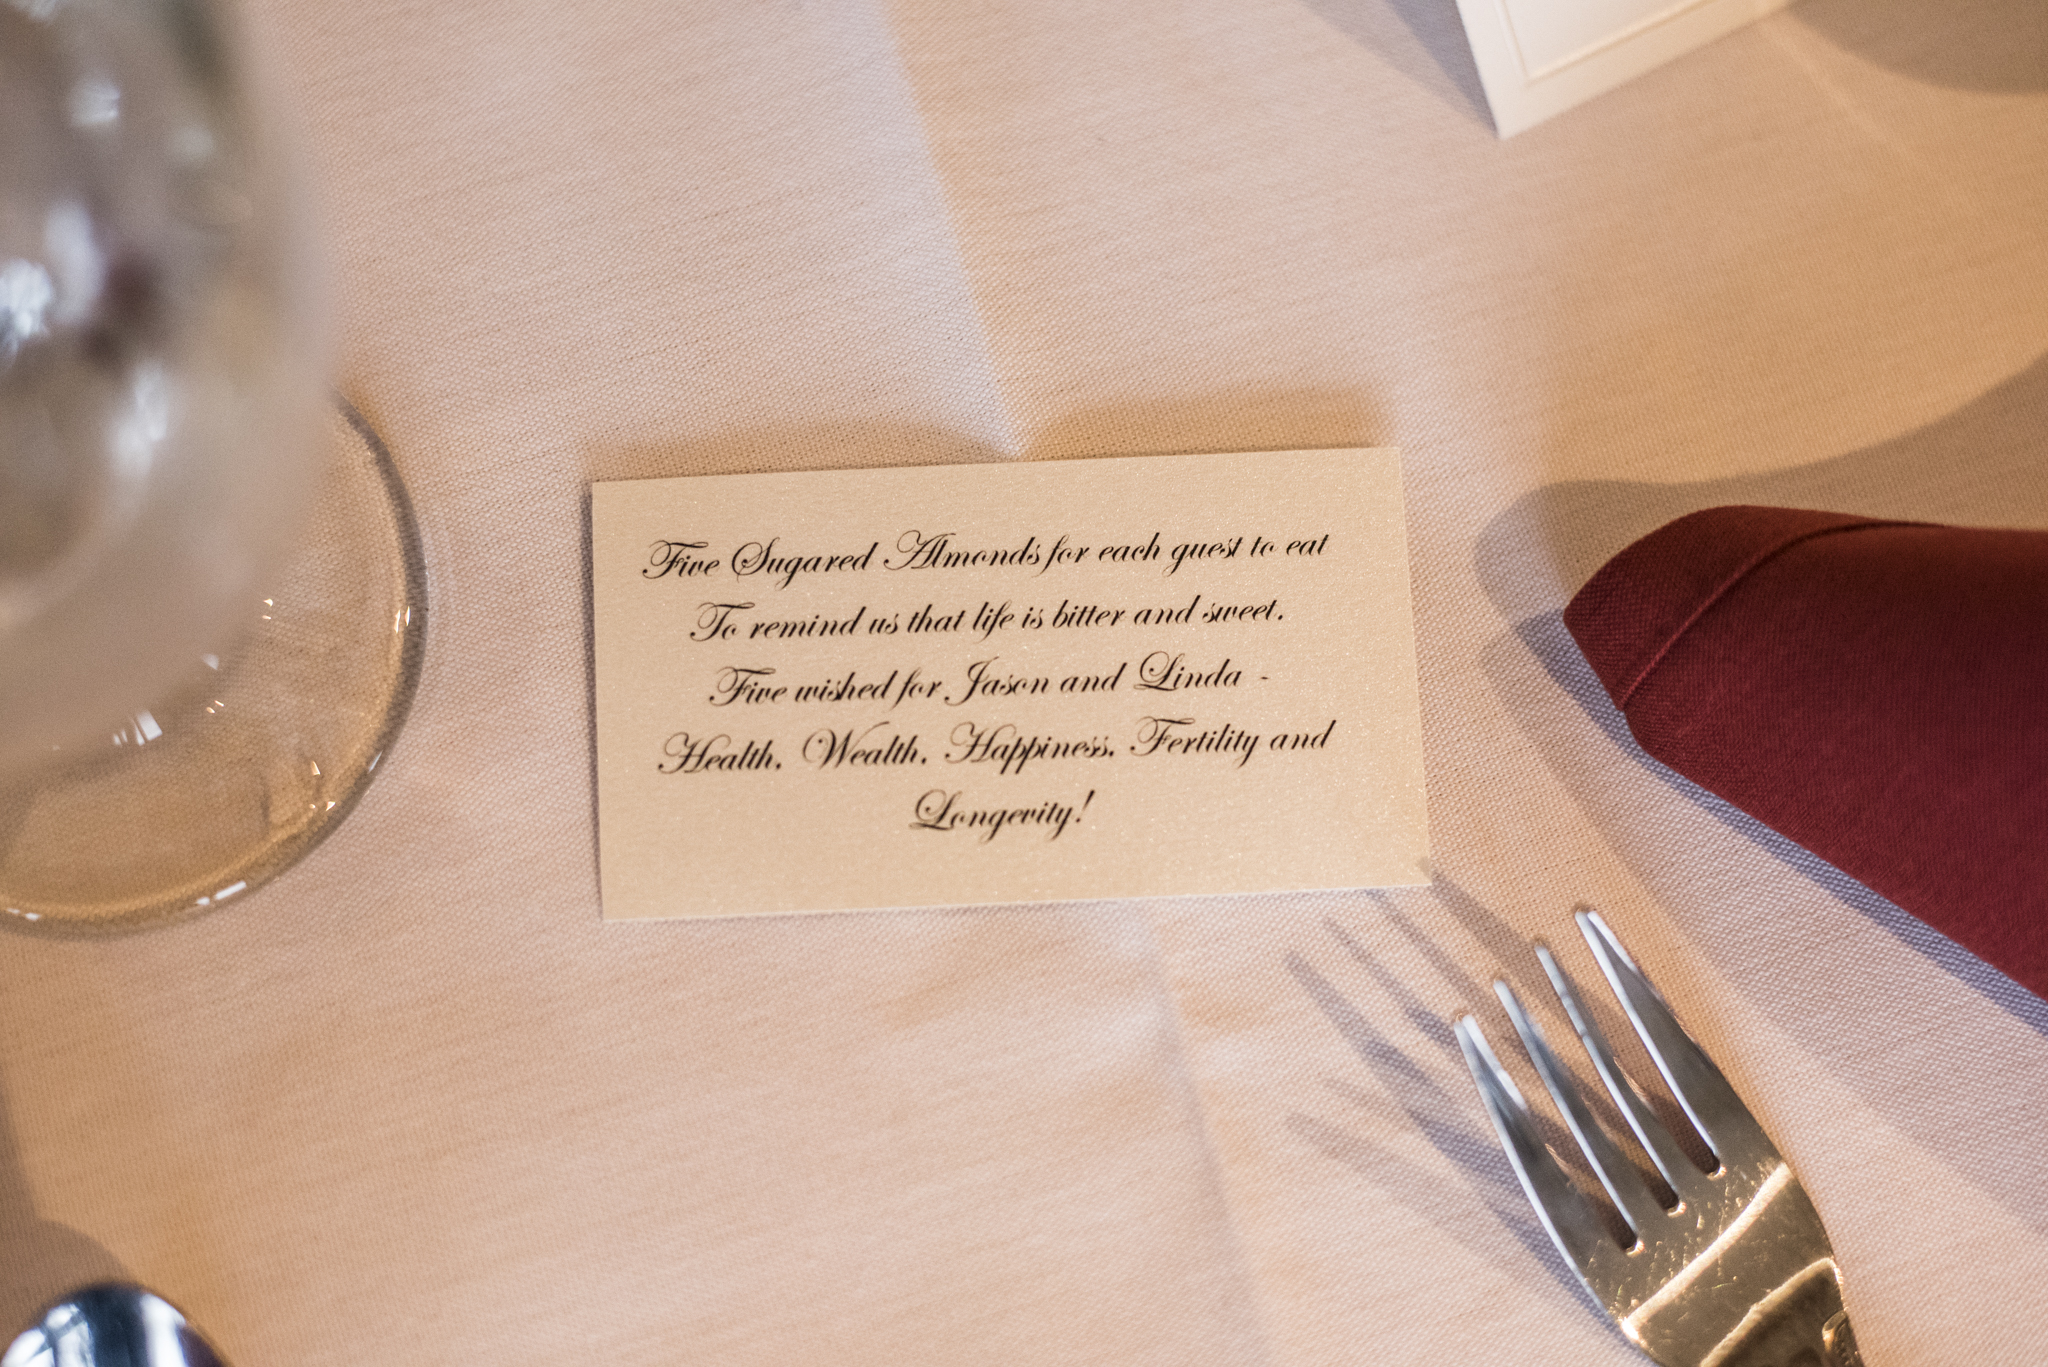 Five Sugared Almonds for each guest to eat
To remind us that life is bitter and sweet.
Five wished for Jason and Linda -
Health, Wealth, Happiness, Fertility and
Longevity!